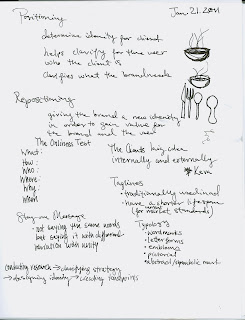 Positioning
Jan. 21. 2011
determine identity for client
helps clarify for the user
who the client is
clarifies what the brand needs
Repositioning
giving the brand a new identity
in order to gain value for
the brand and the user
The Onliness Test
What:
How:
Who:
Where:
Why:
When
The big idea
internally and externally
Taglines
• traditionally
• have a shorter lifespan
(for market standards)
Stay on Message
• not saying the same words
but saying it with different
variation with unity
Typology
• wordmarks
• letterforms
• emblems
• pictorial
• abstract/symbolic mark
conducting research → classifying strategy
→ designing identity → creating touchpoints